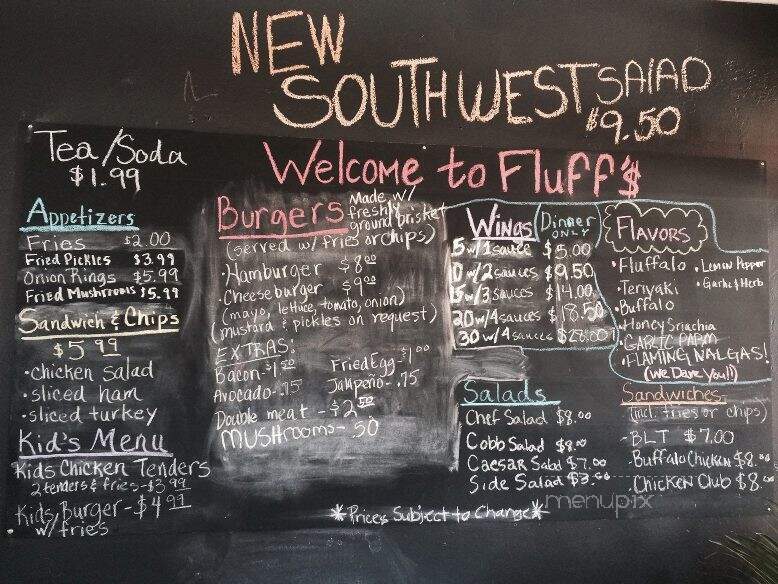 NEW
SOUTHWEST SALAD
$9.50
Tea/Soda
$1.99
Welcome to Fluff's
Appetizers
Fries $2.00
Fried Pickles $3.99
Onion Rings $5.99
Fried Mushrooms $5.99
Sandwich & Chips
$5.99
•chicken salad
•sliced ham
•sliced turkey
Kid's Menu
Kids Chicken Tenders
2 tenders & fries-$3.99
Kids Burger-$4.99
w/fries
Burgers
Made w/
freshly
ground brisket
(served w/ fries or chips)
•Hamburger $8.00
•Cheeseburger $9.00
(mayo, lettuce, tomato, onion)
(mustard & pickles on request)
EXTRAS:
Bacon-$1.50 Fried Egg-$1.00
Avocado-.75 Jalapeño-.75
Double meat -$2.50
MUSHrooms-.50
Wings Dinner
ONLY
5 w/1 sauce $5.00
10 w/2 sauces $9.50
15 w/3 sauces $14.00
20 w/4 sauces $18.50
30 w/4 sauces $28.00
FLAVORS
•Fluffalo •Lemon Pepper
•Teriyaki •Garlic & Herb
•Buffalo
•Honey Sriachia
•GARLIC PARM
•FLAMING NALGAS!
(We Dare You!!)
Salads
Chef Salad $8.00
Cobb Salad $8.00
Caesar Salad $7.00
Side Salad
Sandwiches
(incl. fries or chips)
-BLT $7.00
-Buffalo Chicken $8.00
-Chicken Club $8.00
*Prices Subject to Change*
menupix